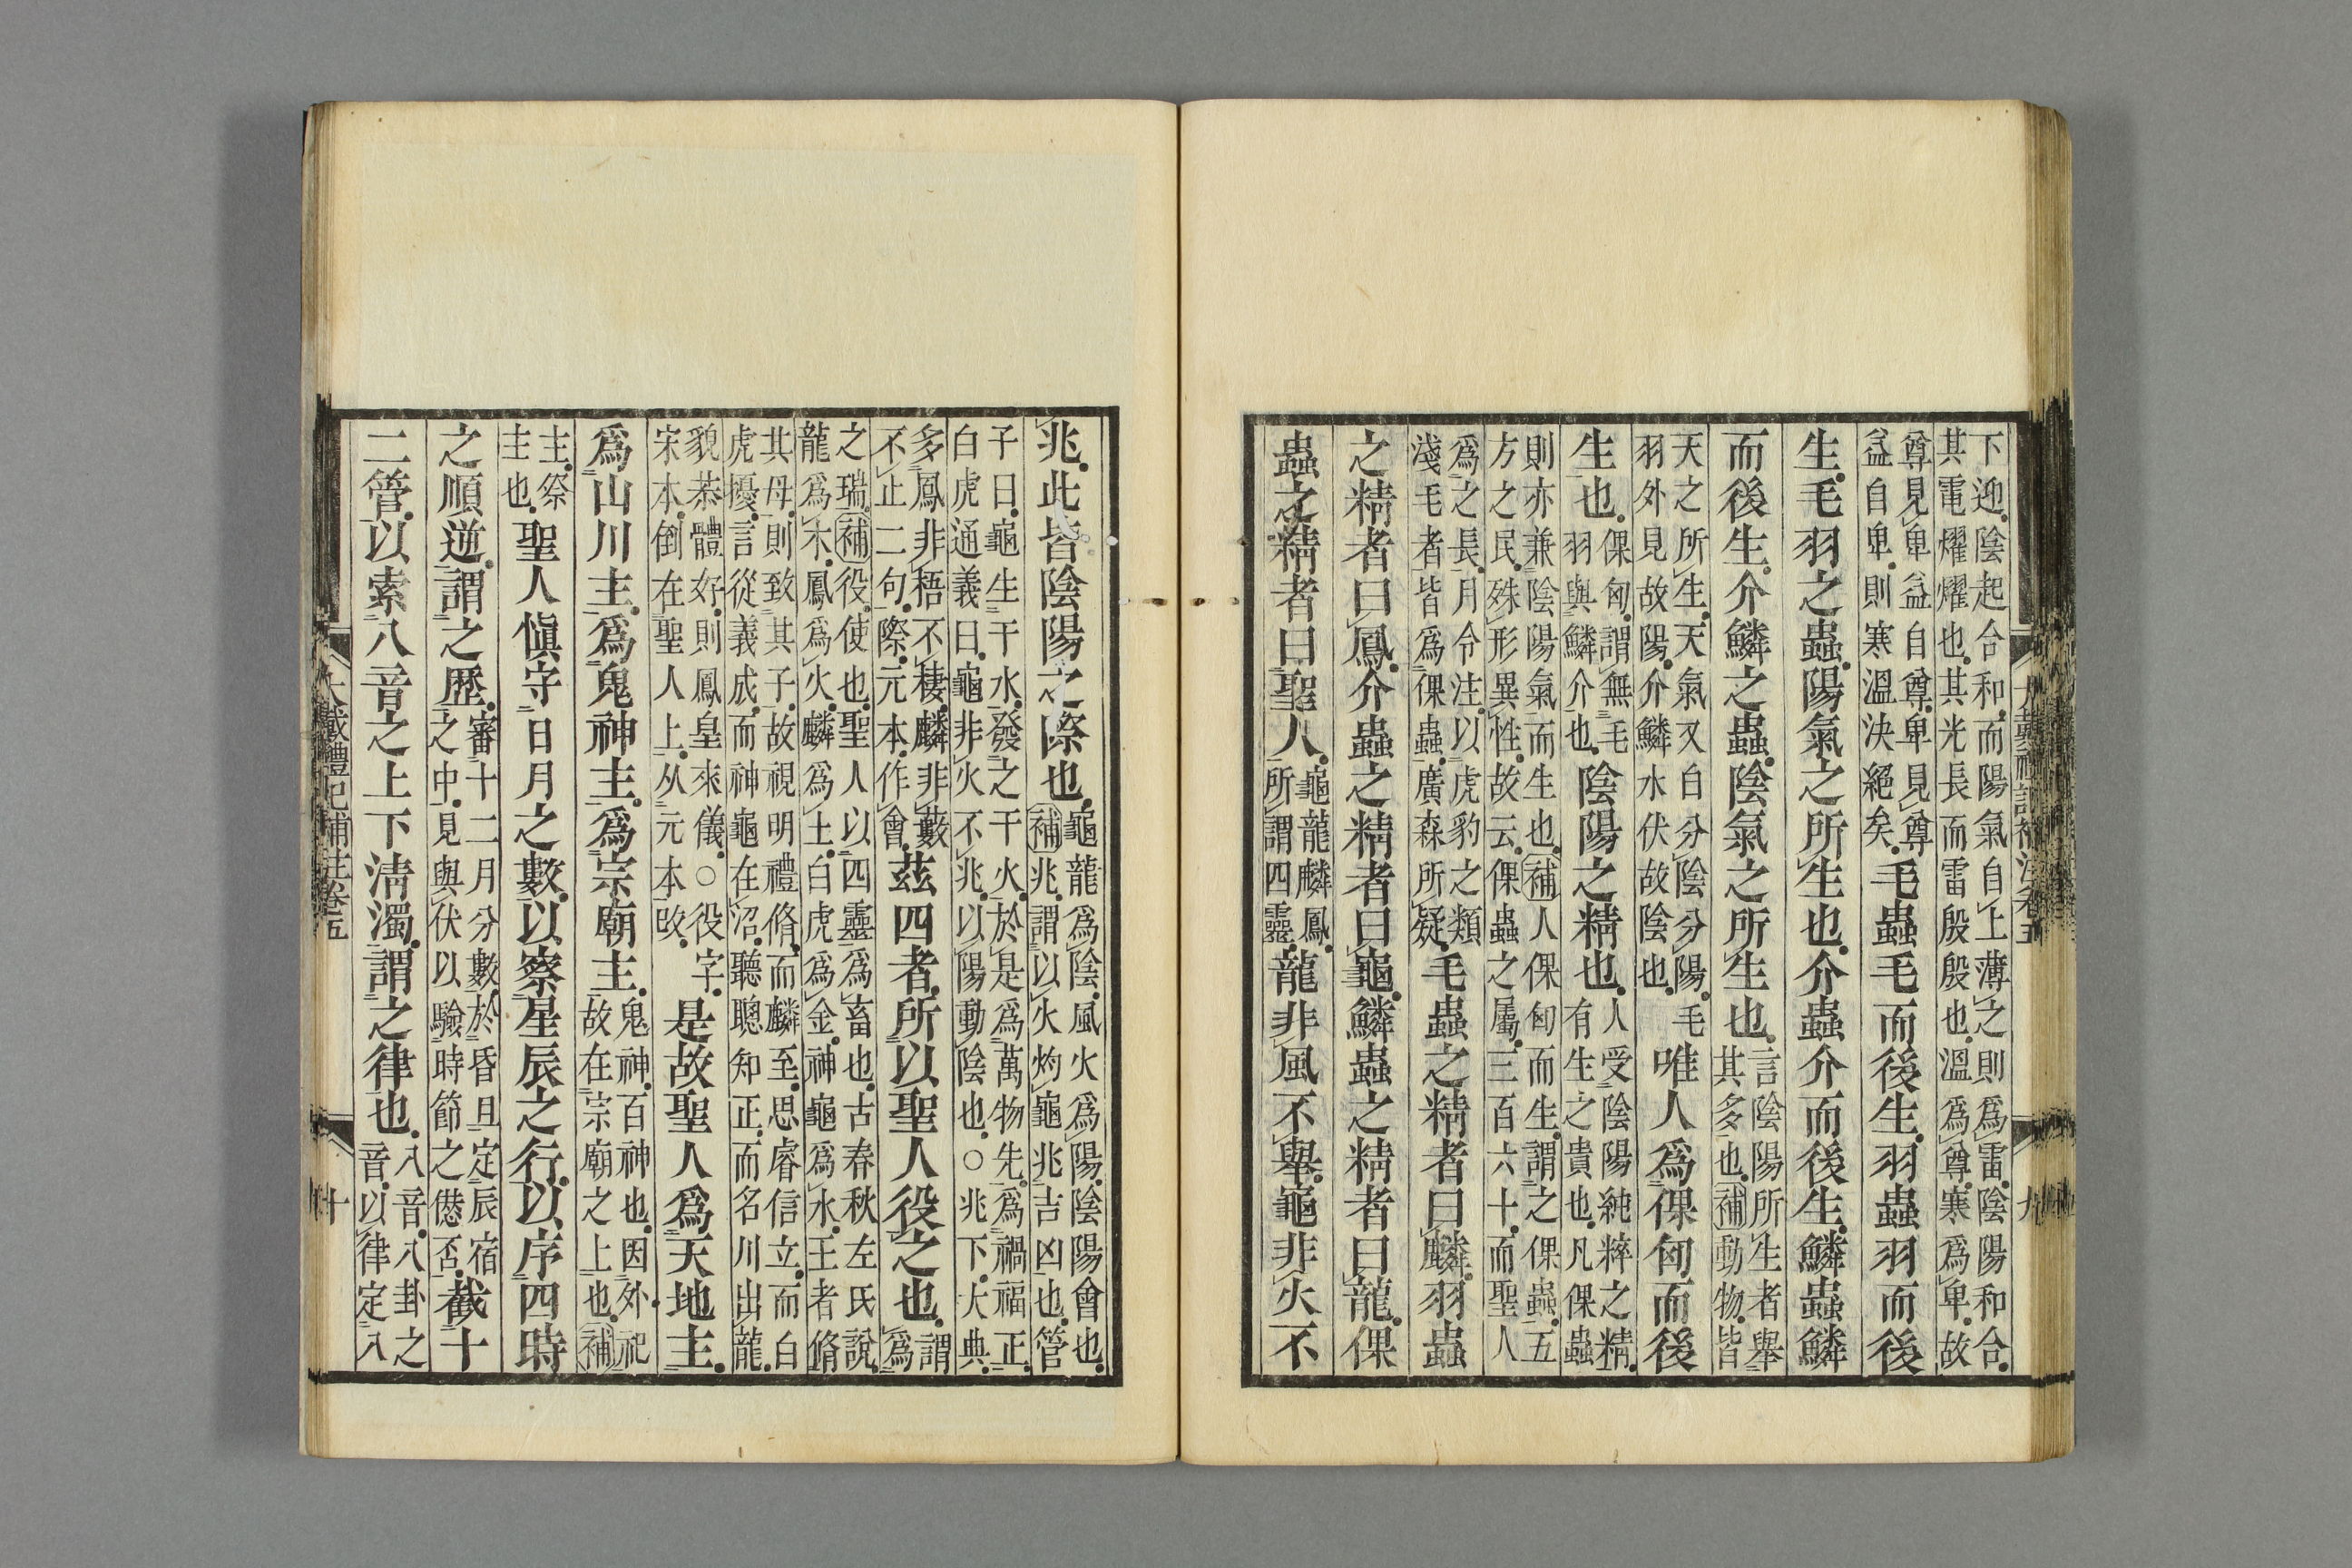 下迎陰起合和而陽氣自上薄之則爲雷陰陽和合
其電燿燿也其光長而雷殷殷也溫爲尊寒爲卑故
尊見卑益自尊卑見尊
益自卑則寒溫決絕矣
毛蟲毛而後生羽蟲羽而後
生毛羽之蟲陽氣之所生也介蟲介而後生鱗蟲鱗
而後生介鱗之蟲陰氣之所生也
言陰陽所生者舉
其多也補動物皆
天之所生天氣又自分陰分陽毛
羽外見故陽介鱗水伏故陰也
唯人爲倮匈而後
生也
倮匈謂無毛
羽與鱗介也
陰陽之精也
人受陰陽純粹之精
有生之貴也凡倮蟲
則亦兼陰陽氣而生也補人倮匈而生謂之倮蟲五
方之民殊形異性故云倮蟲之屬三百六十而聖人
爲之長月令注以虎豹之類
淺毛者皆爲倮蟲廣森所疑
毛蟲之精者曰麟羽蟲
之精者曰鳳介蟲之精者曰龜鱗蟲之精者曰龍倮
蟲之精者曰聖人
龜龍麟鳳
所謂四靈
龍非風不舉龜非火不
兆此皆陰陽之際也
龜龍爲陰風火爲陽陰陽會也
補兆謂以火灼龜兆吉凶也管
子曰龜生干水發之干火於是爲萬物先爲禍福正
白虎通義曰龜非火不兆以陽動陰也○兆下大典
多鳳非梧不棲麟非藪
不止二句際元本作會
茲四者所以聖人役之也
謂
爲
之瑞補役使也聖人以四靈爲畜也古春秋左氏說
龍爲木鳳爲火麟爲土白虎爲金神龜爲水王者脩
其母則致其子故視明禮脩而麟至思睿信立而白
虎擾言從義成而神龜在沼聽聰知正而名川出龍
貌恭體好則鳳皇來儀○役字
宋本倒在聖人上从元本改
是故聖人爲天地主
爲山川主爲鬼神主爲宗廟主
鬼神百神也因外祀
故在宗廟之上也補
主祭
主也
聖人愼守日月之數以察星辰之行以序四時
之順逆謂之歷
審十二月分數於昏旦定辰宿
之中見與伏以驗時節之僁否
截十
二管以索八音之上下淸濁謂之律也
八音八卦之
音以律定八
大戴禮記補注卷五
十